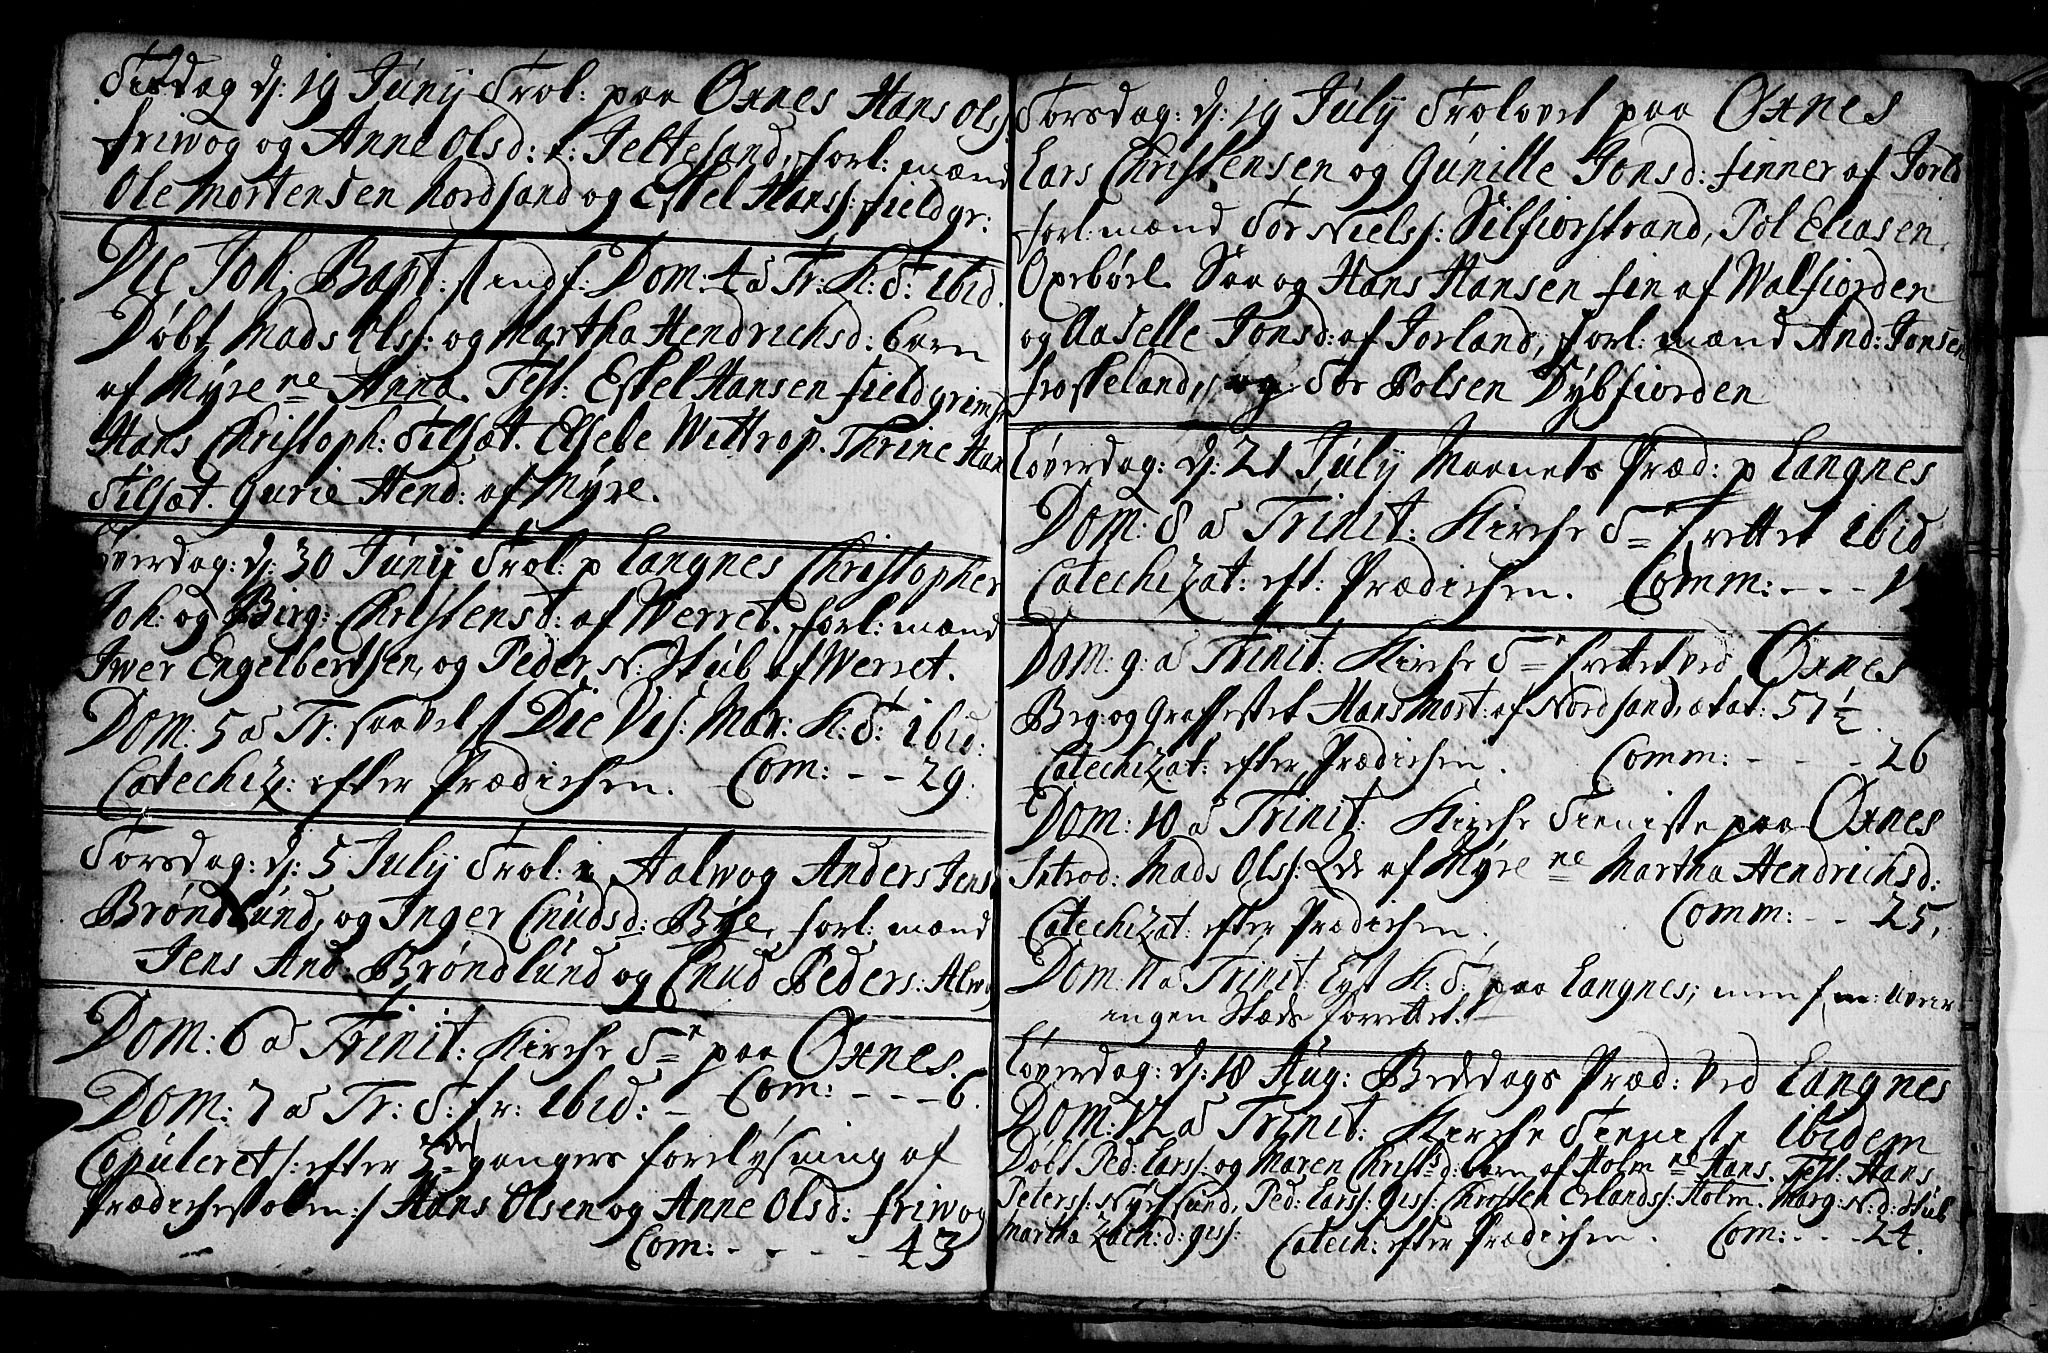 Tisdag d: 19 Junij Trol: paa Øxnes Hans Ols:
friwog og Anne Olsd: i: Jeltesand, forl: mænd
Ole Mortensen Nordsand og Eskel Hans: fieldgr:
Die Joh: Bapt: / indf: Dom: 4 à Tr: K: T: ibid.
Døbt Mads Ols: og Martha Hendrichsd: barn
af Myre ne Anna. Test: Eskel Hansen fieldgrims
Hans Christoph: Tilsæt. Elsebe Wittrop. Thrine Han
Tilsæt. Gurie Hend: af Myre.
Løverdag: d: 30 Junij Trol: p Langnes Christopher
Joh: og Birg: Christensd: af Werret. forl: mænd
Iwer Engelbertsen, og Peder N: Stub af Werret.
Dom: 5 à Tr: saavel / Die Vis: Mar: K: T: ibid:
Catechiz: efter Prædichen. Com: - - 29.
Torsdag: d: 5 July Trol: i Aalwog Anders Jens
Brøndlund, og Inger Cnudsd: Bye, forl: mænd
Jens And: Brøndlund og Cnud Peders: Alwo
Dom: 6 à Trinit: Kirche T=e paa Øxnes.
Dom: 7 à Tr: T: fr: ibid: - Com: - - - 6.
Copuleret /: efter 3de gangers forelysning af
Prædichestolen :/ Hans Olsen og Anne Olsd: friwog
Com: - - - - 43
Torsdag: d: 19 Julij Trolovet paa Øxnes
Lars Christensen og Gunille Jonsd: finner af Jorld
forl: mænd Tor Niels: Silfiorstrand, Pol Eliasen
Oxebøel. Saa og Hans Hansen fin af Walfiorden
og Aaselle Jonsd: af Jorland, forl: mænd And: Jonsen
froskeland, og Tor Polsen Dybfiorden
Løverdag: d: 21 Julij Maanets Præd: p Langnes
Dom: 8 à Trinit: Kirche T=e frettet ibid
Catechizat: eft: Prædichen. Comm: - - -
Dom: 9: à Trinit: Kirche T=e frettet ved Øxnes
Beg: og Graffestet Hans Mort: af Nordsand, ætat: 57 1/2.
Catechizat: efter Prædichen. Comm: - - - 26
Dom: 10 à Trinit: Kirche Tieniste paa Øxnes
Introd: Mads Ols: Qde af Myre ne Martha Hendrichsd:
Catechizat: efter Prædichen. Comm: - - 25.
Dom: 11 à Trinit: Lyst K: T: paa Langnes; men form: uveir
ingen Stæds forrettet.
Løverdag: d: 18 Aug: Bededags Præd: ved Langnes
Dom: 12 à Trinit: Kirche Tieniste ibidem
Døbt Ped: Lars: og Maren Christ:d: barn af Holm ne Hans. Test: Hans
Peters: Nyksund, Ped: Lars: Gis: Christen Erlands: Holm. Marg: N:d: Stub
Martha Zach:d: Gis: Catech: efter Prædichen. Com: - - - 24.